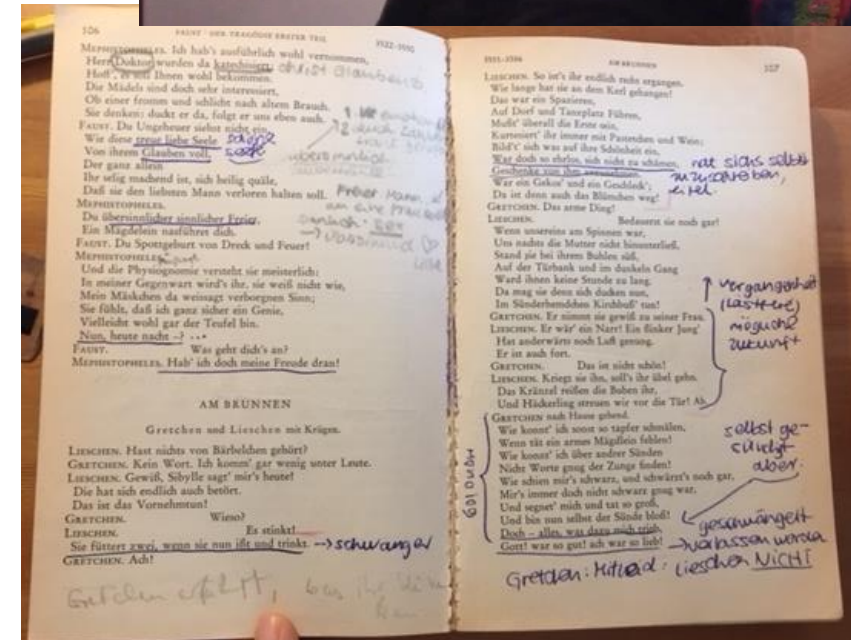 106
FAUST · DER TRAGÖDIE ERSTER TEIL
MEPHISTOPHELES. Ich hab's ausführlich wohl vernommen,
Herr Doktor wurden da katechisiert;
Hoff', es soll Ihnen wohl bekommen.
Die Mädels sind doch sehr interessiert,
Ob einer fromm und schlicht nach altem Brauch.
Sie denken: duckt er da, folgt er uns eben auch.
FAUST. Du Ungeheuer siehst nicht ein,
Wie diese treue liebe Seele
Von ihrem Glauben voll,
Der ganz allein
Ihr selig machend ist, sich heilig quäle,
Daß sie den liebsten Mann verloren halten soll.
MEPHISTOPHELES.
Du übersinnlicher sinnlicher Freier,
Ein Mägdelein nasführet dich.
FAUST. Du Spottgeburt von Dreck und Feuer!
MEPHISTOPHELES.
Und die Physiognomie versteht sie meisterlich:
In meiner Gegenwart wird's ihr, sie weiß nicht wie,
Mein Mäskchen da weissagt verborgnen Sinn;
Sie fühlt, daß ich ganz sicher ein Genie,
Vielleicht wohl gar der Teufel bin.
Nun, heute nacht –?
FAUST. Was geht dich's an?
MEPHISTOPHELES. Hab' ich doch meine Freude dran!
AM BRUNNEN
Gretchen und Lieschen mit Krügen.
LIESCHEN. Hast nichts von Bärbelchen gehört?
GRETCHEN. Kein Wort. Ich komm' gar wenig unter Leute.
LIESCHEN. Gewiß, Sibylle sagt' mir's heute!
Die hat sich endlich auch betört.
Das ist das Vornehmtun!
GRETCHEN. Wieso?
LIESCHEN. Es stinkt!
Sie füttert zwei, wenn sie nun ißt und trinkt. → schwanger
GRETCHEN. Ach!
Gretchen
AM BRUNNEN
107
LIESCHEN. So ist's ihr endlich recht ergangen.
Wie lange hat sie an dem Kerl gehangen!
Das war ein Spazieren,
Auf Dorf und Tanzplatz Führen,
Mußt' überall die Erste sein,
Kurtesiert' ihr immer mit Pastetchen und Wein;
Bild't' sich was auf ihre Schönheit ein,
War doch so ehrlos, sich nicht zu schämen,
Geschenke von ihm anzunehmen.
War ein Gekos' und ein Geschleck';
Da ist denn auch das Blümchen weg!
hat sichs selbst
zuzuschreiben,
eitel.
GRETCHEN. Das arme Ding!
LIESCHEN. Bedauerst sie noch gar!
Wenn unsereins am Spinnen war,
Uns nachts die Mutter nicht hinunterließ,
Stand sie bei ihrem Buhlen süß,
Auf der Türbank und im dunkeln Gang
Ward ihnen keine Stunde zu lang.
Da mag sie denn sich ducken nun,
Im Sünderhemdchen Kirchbuß' tun!
GRETCHEN. Er nimmt sie gewiß zu seiner Frau.
LIESCHEN. Er wär' ein Narr! Ein flinker Jung'
Hat anderwärts noch Luft genung.
Er ist auch fort.
GRETCHEN. Das ist nicht schön!
LIESCHEN. Kriegt sie ihn, soll's ihr übel gehn.
Das Kränzel reißen die Buben ihr,
Und Häckerling streuen wir vor die Tür! Ab.
↑ Vergangenheit
mögliche
Zukunft
GRETCHEN nach Hause gehend.
Wie konnt' ich sonst so tapfer schmälen,
Wenn tät ein armes Mägdlein fehlen!
Wie konnt' ich über andrer Sünden
Nicht Worte gnug der Zunge finden!
Wie schien mir's schwarz, und schwärzt's noch gar,
Mir's immer doch nicht schwarz gnug war,
Und segnet' mich und tat so groß,
Und bin nun selbst der Sünde bloß!
Doch – alles, was dazu mich trieb,
Gott! war so gut! ach war so lieb!
Monolog
selbst ge-
sündigt
aber.
geschwängert
→ verlassen worden
Gretchen: Mitleid: Lieschen NICHT